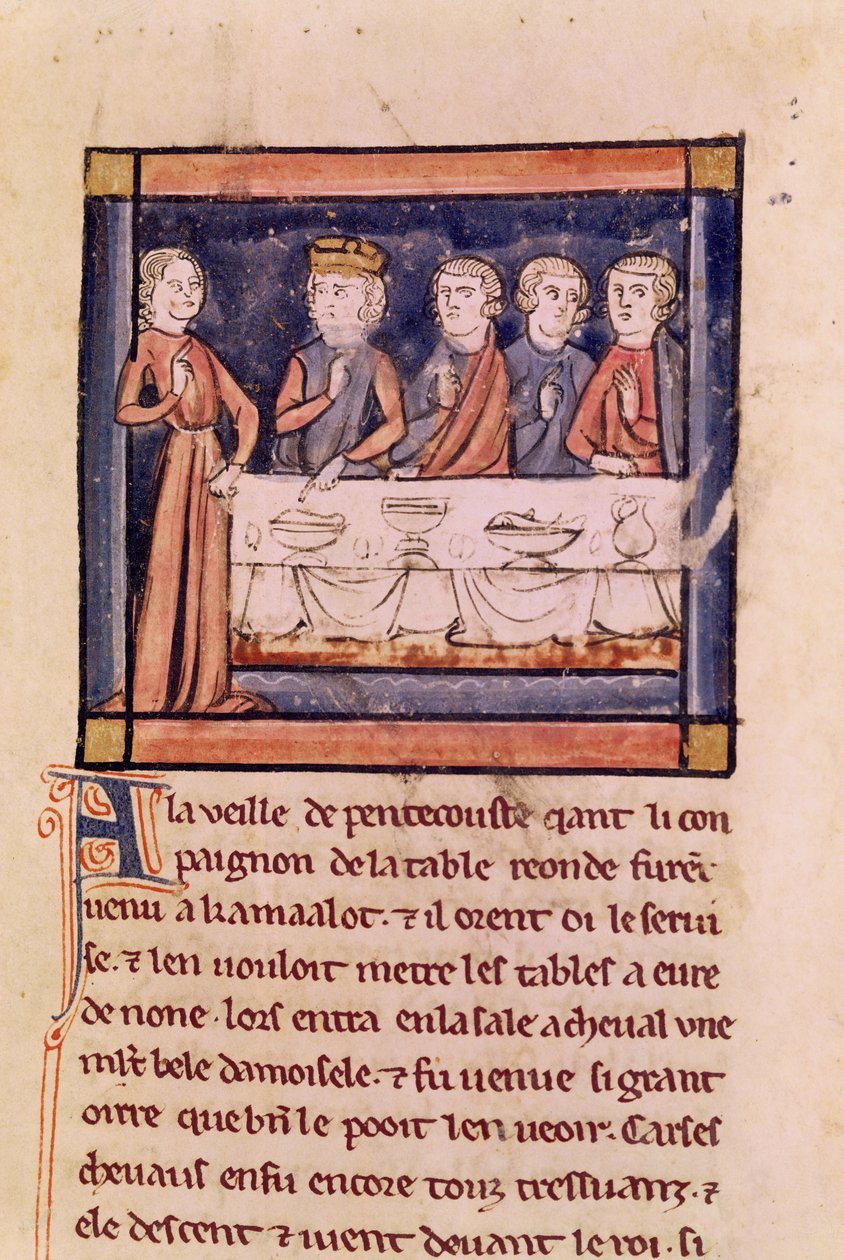 A la veille de pentecouste qant li con
paignon de la table reonde furēt
uenu a kamaalot. ⁊ il orent oi le serui
se. ⁊ len uouloit metre les tables a eure
de none. lors entra en la sale a cheual vne
ml't bele damoisele. ⁊ fu uenue si grant
oirre que bn̄ le pooit len ueoir. Car ses
cheuaus en fu encore touz tressuanz. ⁊
ele descent ⁊ uient deuant le roi. si